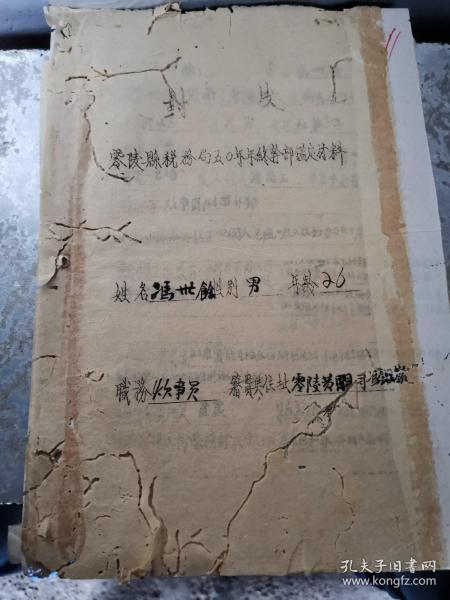 封皮
零陵縣稅務局五〇年年終幹部鑑定材料
姓名 馮世餘 性別 男 年齡 26
職務 炊事員 籍貫與住址 零陵黄
孔夫子旧书网
www.kongfz.com